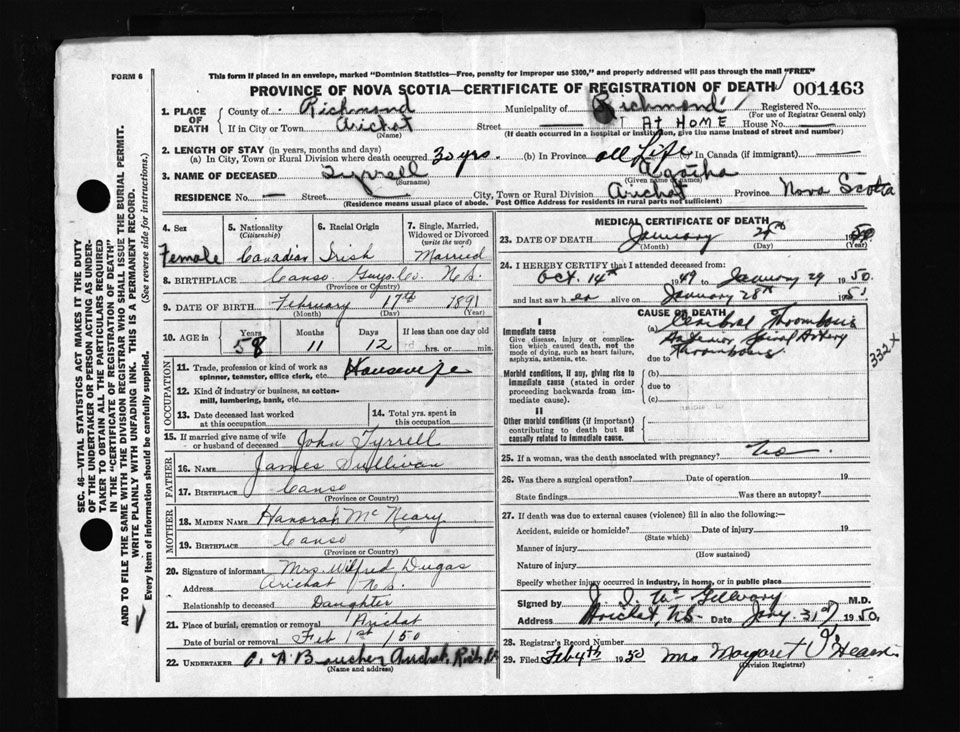 This form if placed in an envelope, marked "Dominion Statistics—Free, penalty for improper use $300," and properly addressed will pass through the mail "FREE"
FORM 6
PROVINCE OF NOVA SCOTIA—CERTIFICATE OF REGISTRATION OF DEATH 001463
1. PLACE OF DEATH County of Richmond Municipality of Richmond Registered No.
(For use of Registrar General only)
If in City or Town Arichat Street AT HOME House No.
(Name) (If death occurred in a hospital or institution, give the name instead of street and number)
2. LENGTH OF STAY (in years, months and days)
(a) In City, Town or Rural Division where death occurred 30 yrs. (b) In Province all Life (c) In Canada (if immigrant)
3. NAME OF DECEASED Tyrrell Agatha
(Surname) (Given name or names)
RESIDENCE No. Street City, Town or Rural Division Arichat Province Nova Scotia
(Residence means usual place of abode. Post Office Address for residents in rural parts not sufficient)
SEC. 46—VITAL STATISTICS ACT MAKES IT THE DUTY
OF THE UNDERTAKER OR PERSON ACTING AS UNDER-
TAKER TO OBTAIN ALL THE PARTICULARS REQUIRED
IN THE "CERTIFICATE OF REGISTRATION OF DEATH"
AND TO FILE THE SAME WITH THE DIVISION REGISTRAR WHO SHALL ISSUE THE BURIAL PERMIT.
WRITE PLAINLY WITH UNFADING INK. THIS IS A PERMANENT RECORD.
Every item of information should be carefully supplied. (See reverse side for instructions.)
4. Sex 5. Nationality (Citizenship) 6. Racial Origin 7. Single, Married, Widowed or Divorced (write the word)
Female Canadian Irish Married
8. BIRTHPLACE Canso Guys. Co. N.S.
(Province or Country)
9. DATE OF BIRTH February 17th 1891
(Month) (Day) (Year)
10. AGE in Years Months Days If less than one day old
58 11 12 hrs. or min.
OCCUPATION
11. Trade, profession or kind of work as spinner, teamster, office clerk, etc. Housewife
12. Kind of industry or business, as cotton-mill, lumbering, bank, etc.
13. Date deceased last worked at this occupation
14. Total yrs. spent in this occupation
15. If married give name of wife or husband of deceased John Tyrrell
FATHER
16. NAME James Sullivan
17. BIRTHPLACE Canso
(Province or Country)
MOTHER
18. MAIDEN NAME Hanorah McNeary
19. BIRTHPLACE Canso
(Province or Country)
20. Signature of informant Mrs. Wilfred Dugas
Address Arichat N.S.
Relationship to deceased Daughter
21. Place of burial, cremation or removal Arichat
Date of burial or removal Feb 1st /50
22. UNDERTAKER Arichat
(Name and address)
MEDICAL CERTIFICATE OF DEATH
23. DATE OF DEATH January 29th 1950
(Month) (Day) (Year)
24. I HEREBY CERTIFY that I attended deceased from:
Oct. 14th 1949 to January 29 1950.
and last saw her alive on January 28th 19
CAUSE OF DEATH
I
Immediate cause (a) Cerebral Thrombosis
Give disease, injury or complication which caused death, not the mode of dying, such as heart failure, asphyxia, asthenia, etc.
Anterior Spinal Artery
due to Thrombosis
332 x
Morbid conditions, if any, giving rise to immediate cause (stated in order proceeding backwards from immediate cause).
(b)
due to
(c)
II
Other morbid conditions (if important) contributing to death but not causally related to immediate cause.
25. If a woman, was the death associated with pregnancy? No
26. Was there a surgical operation? Date of operation 19
State findings Was there an autopsy?
27. If death was due to external causes (violence) fill in also the following:—
Accident, suicide or homicide? Date of injury 19
(State which)
Manner of injury
(How sustained)
Nature of injury
Specify whether injury occurred in industry, in home, or in public place
Signed by M.D.
Address Arichat, N.S. Date Jany. 31st 1950.
28. Registrar's Record Number
29. Filed Feb 4th 1950 Mrs Margaret O'Hearn
(Division Registrar)